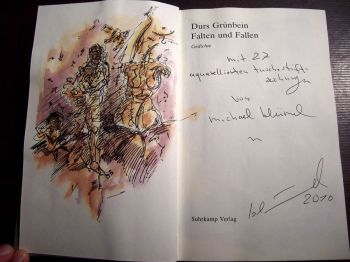 Durs Grünbein
Falten und Fallen
Gedichte
mit 22
aquarellierten Tuschestift-
zeichnungen
von
michael blümel
2010
Suhrkamp Verlag